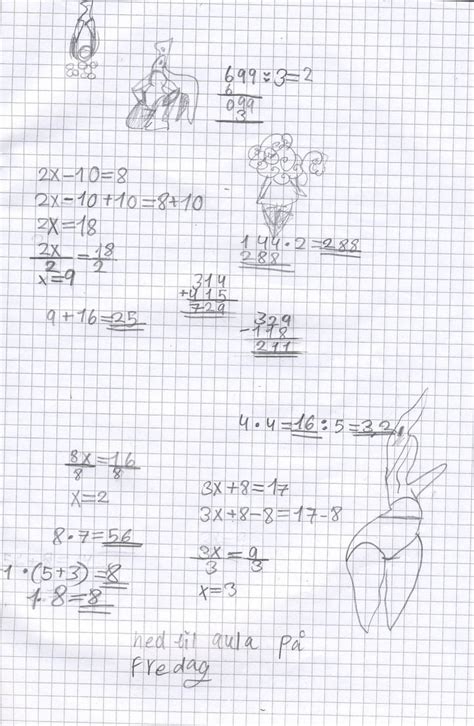 699:3=2
6
099
3
2x-10=8
2x-10+10=8+10
2x=18
2x/2=18/2
x=9
9+16=25
144·2=288
288
314
+415
729
329
-118
211
4·4=16:5=3,2
8x/8=16/8
x=2
8·7=56
1·(5+3)=8
1·8=8
3x+8=17
3x+8-8=17-8
3x/3=9/3
x=3
ned til aula på
Fredag